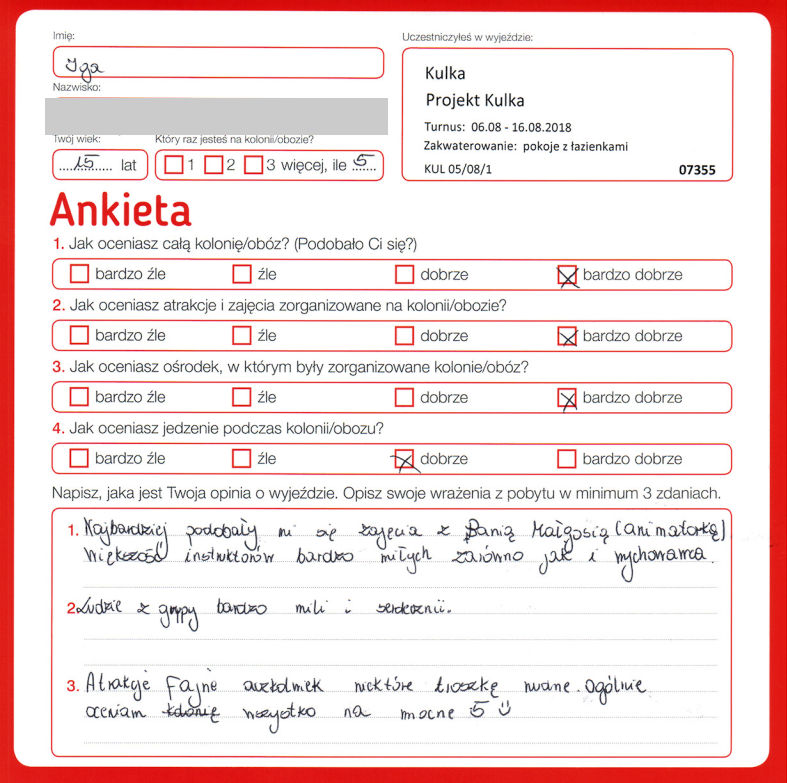 Imię:
Iga
Nazwisko:
Twój wiek:
15 lat
Który raz jesteś na kolonii/obozie?
1 2 3 więcej, ile 5
Uczestniczyłeś w wyjeździe:
Kulka
Projekt Kulka
Turnus: 06.08 - 16.08.2018
Zakwaterowanie: pokoje z łazienkami
KUL 05/08/1 07355
Ankieta
1. Jak oceniasz całą kolonię/obóz? (Podobało Ci się?)
bardzo źle źle dobrze bardzo dobrze
2. Jak oceniasz atrakcje i zajęcia zorganizowane na kolonii/obozie?
bardzo źle źle dobrze bardzo dobrze
3. Jak oceniasz ośrodek, w którym były zorganizowane kolonie/obóz?
bardzo źle źle dobrze bardzo dobrze
4. Jak oceniasz jedzenie podczas kolonii/obozu?
bardzo źle źle dobrze bardzo dobrze
Napisz, jaka jest Twoja opinia o wyjeździe. Opisz swoje wrażenia z pobytu w minimum 3 zdaniach.
1. Najbardziej podobały mi się zajęcia z Panią Małgosią (animatorką)
Większość instruktorów bardzo miłych zarówno jak i wychowawca.
2. Ludzie z grupy bardzo mili i serdecznii.
3. Atrakcje Fajne aczkolwiek niektóre troszkę nudne. Ogólnie
oceniam kolonię wszystko na mocne 5